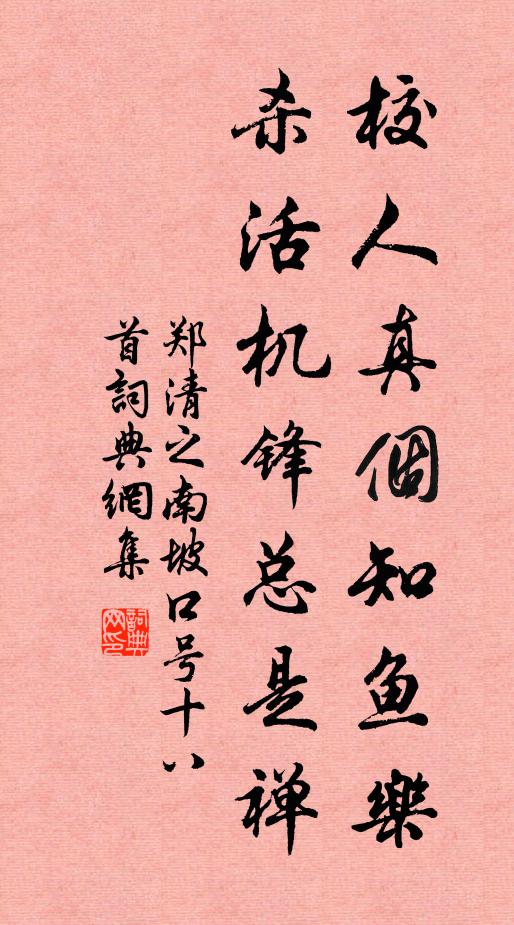 校人真個知鱼樂
杀活机锋总是禅
郑清之南坡口号十八
首詞典網集
詞典
网印